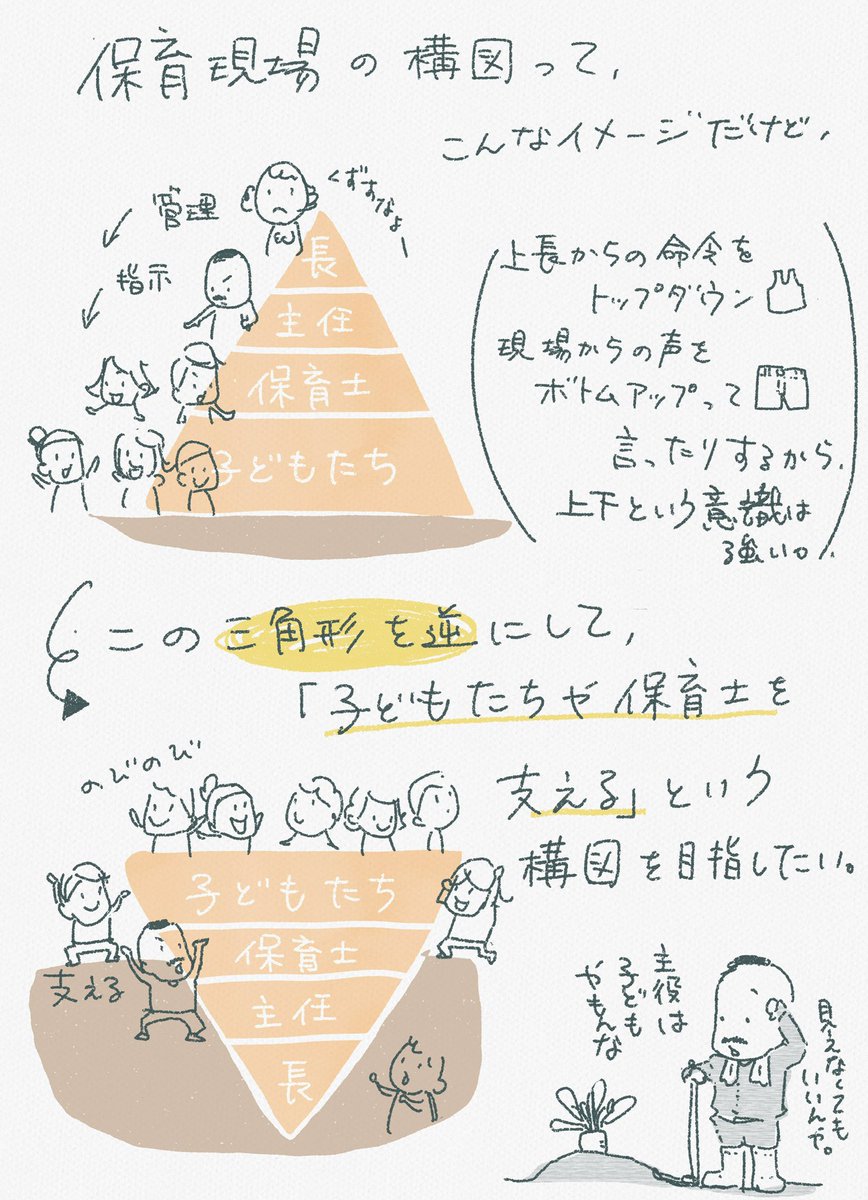 保育現場の構図って、
こんなイメージだけど、
くずすなよー
管理
指示
長
主任
保育士
子どもたち
上長からの命令を
トップダウン
現場からの声を
ボトムアップって
言ったりするから、
上下という意識は
強い。
この三角形を逆にして、
「子どもたちや保育士を
支える」という
構図を目指したい。
のびのび
子どもたち
保育士
主任
長
支える
主役は
子ども
やもんな
見えなくても
いいんや。